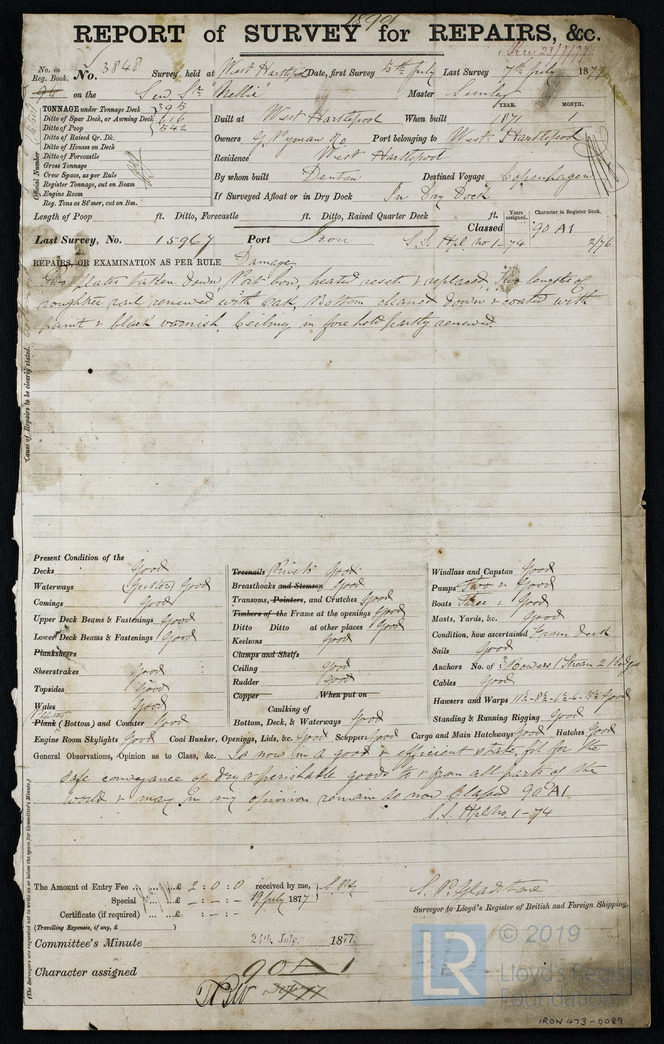 REPORT of SURVEY for REPAIRS, &c.
No. in Reg. Book. No. 3848 Survey held at West Hartlepool Date, first Survey 5th July Last Survey 7th July 1877
96 on the Scw Str "Nellie" Master
TONNAGE under Tonnage Deck 395
Ditto of Spar Deck, or Awning Deck
Ditto of Poop 542
Ditto of Raised Qr. Dk.
Ditto of House on Deck
Ditto of Forecastle
Gross Tonnage
Crew Space, as per Rule
Register Tonnage, cut on Beam
Engine Room
Reg. Tons as St'mer, cut on Bm.
Official Number
YEAR. MONTH.
Built at West Hartlepool When built 1871
Owners Port belonging to West Hartlepool
Residence West Hartlepool
By whom built Denton Destined Voyage Copenhagen
If Surveyed Afloat or in Dry Dock In Dry Dock
Length of Poop ft. Ditto, Forecastle ft. Ditto, Raised Quarter Deck ft. Years assigned. Character in Register Book.
Classed 90 A1
Last Survey, No. 15967 Port Iron S.S. Hpl No 1-74 2/76
REPAIRS, OR EXAMINATION AS PER RULE Damage
Two plates taken down Port bow, heated reset & replaced, two lengths of
roughtree rail renewed with Oak, Bottom cleaned down & coated with
paint & black varnish, Ceiling in fore hold partly renewed.
Cause of Repairs to be clearly stated.
Present Condition of the
Decks Good
Waterways (Gutter) Good
Comings Good
Upper Deck Beams & Fastenings Good
Lower Deck Beams & Fastenings Good
Planksheers
Sheerstrakes Good
Topsides Good
Wales Good
Plank (Bottom) and Counter Good
Treenails Rivets Good
Breasthooks and Stemson Good
Transoms, Pointers, and Crutches Good
Timbers of the Frame at the openings Good
Ditto Ditto at other places Good
Keelsons Good
Clamps and Shelfs
Ceiling Good
Rudder Good
Copper When put on
Caulking of
Bottom, Deck, & Waterways Good
Windlass and Capstan Good
Pumps Two Good
Boats Three Good
Masts, Yards, &c. Good
Condition, how ascertained From deck
Sails Good
Anchors No. of 3 Bowers 1 Stream 2 Kedges
Cables Good
Hawsers and Warps Good
Standing & Running Rigging Good
Engine Room Skylights Good Coal Bunker, Openings, Lids, &c. Good Scuppers Good Cargo and Main Hatchways Good Hatches Good
General Observations, Opinion as to Class, &c. Is now in a good & efficient state, fit for the
safe conveyance of dry & perishable goods to & from all parts of the
world & may in my opinion remain as now Classed 90 A1
S.S. Hpl No. 1-74
(The Surveyors are requested not to write on or below the space for Committee's Minute.)
The Amount of Entry Fee ... £ 2 : 0 : 0 received by me,
Special ... £ - : - : - 19 July 1877
Certificate (if required) ... £ - : - : -
(Travelling Expenses, if any, £ )
S. P. Gladstone
Surveyor to Lloyd's Register of British and Foreign Shipping.
Committee's Minute 24th July 1877.
Character assigned 90 A 1
LR © 2019
Lloyd's Register
Foundation
IRON 473-0089